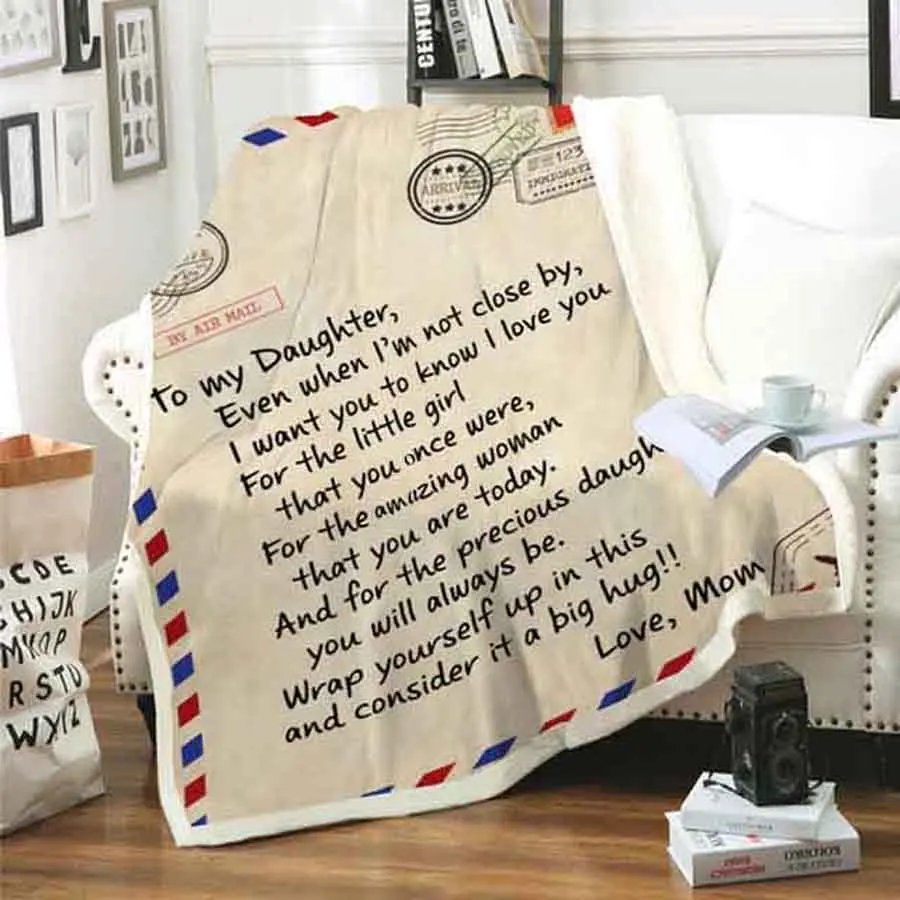 CENTU
ARRIVAL
123
IMMIGRATI
BY AIR MAIL
To my Daughter,
Even when I'm not close by,
I want you to know I love you
For the little girl
that you once were,
For the amazing woman
that you are today.
And for the precious daugh
you will always be.
Wrap yourself up in this
and consider it a big hug!!
Love, Mom
L
CDE
GHIJK
MNOP
RSTU
WXYZ